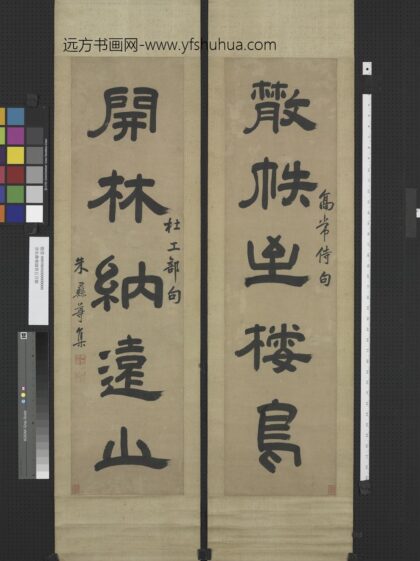 远方书画网-www.yfshuhua.com
散帙至棲鳥
高常侍句
開林納遠山
杜工部句
朱彝尊集